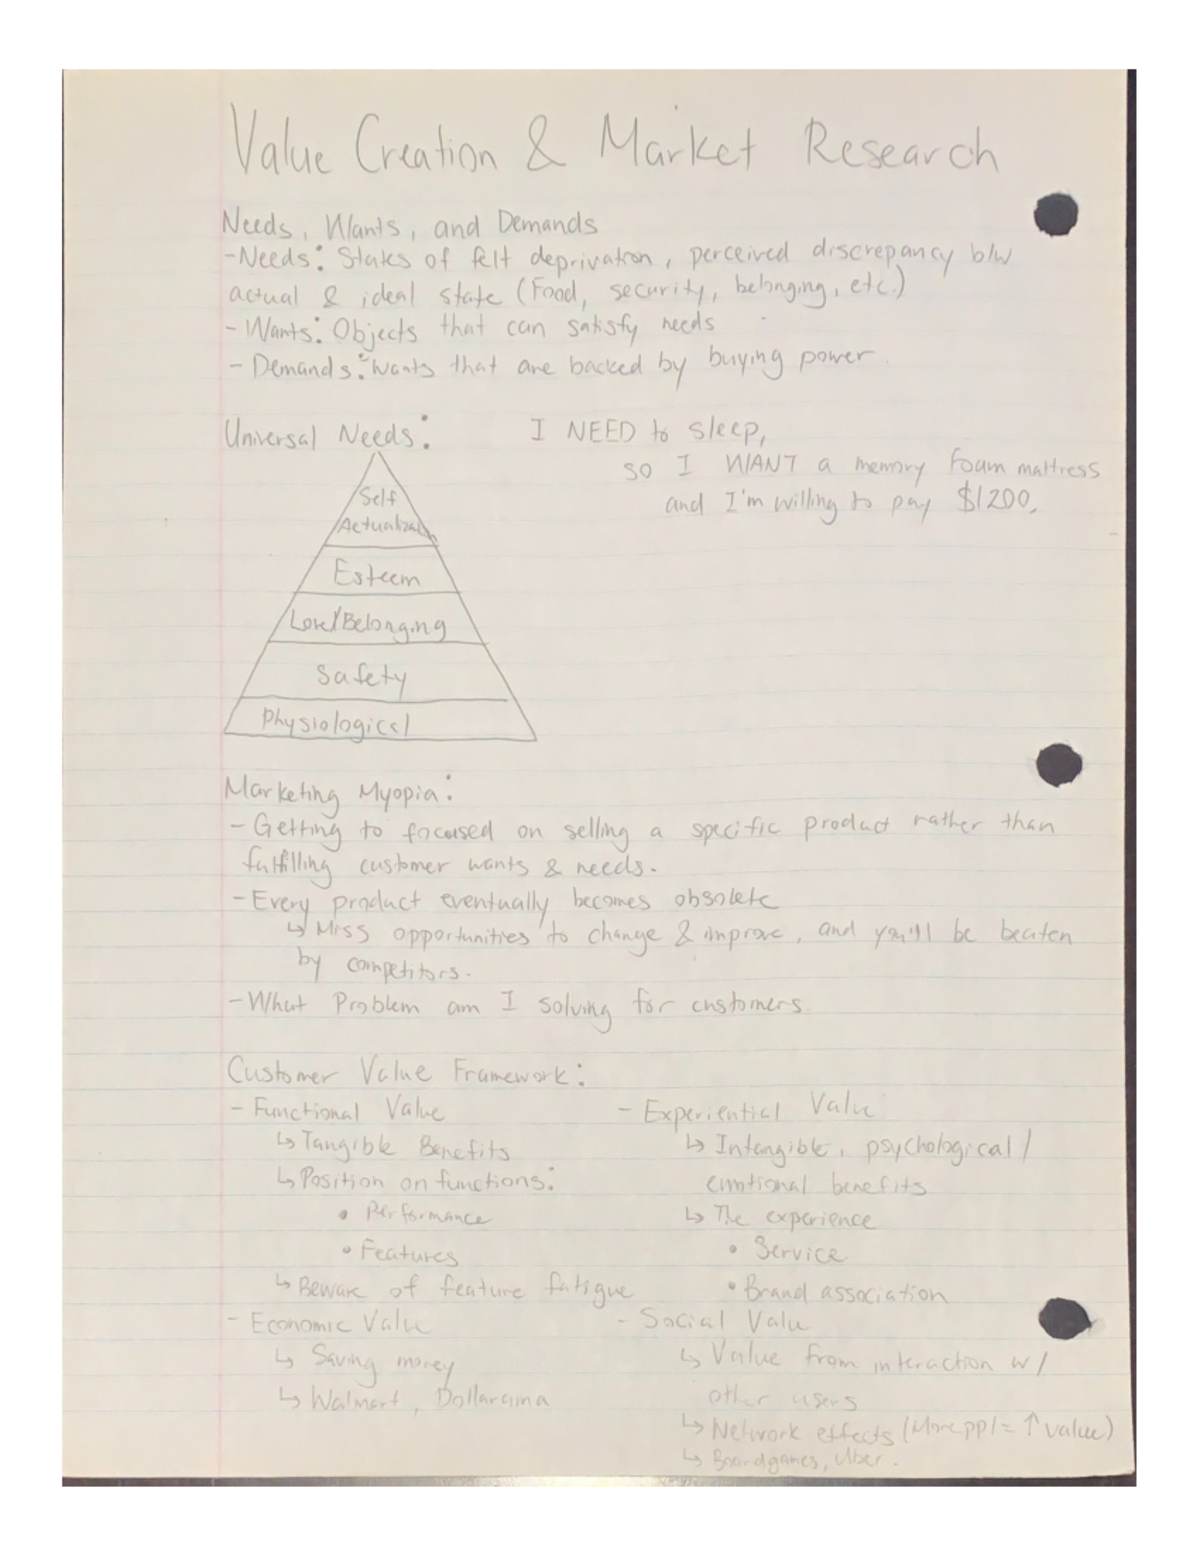 Value Creation & Market Research
Needs, Wants, and Demands
- Needs: States of felt deprivation, perceived discrepancy b/w
actual & ideal state (Food, security, belonging, etc.)
- Wants: Objects that can satisfy needs
- Demands: Wants that are backed by buying power.
Universal Needs:
I NEED to sleep,
so I WANT a memory foam mattress
and I'm willing to pay $1200.
Self
Actualization
Esteem
Love/Belonging
Safety
Physiological
Marketing Myopia:
- Getting to focused on selling a specific product rather than
fulfilling customer wants & needs.
- Every product eventually becomes obsolete
↳ Miss opportunities to change & improve, and you'll be beaten
by competitors.
- What Problem am I solving for customers.
Customer Value Framework:
- Functional Value
↳ Tangible Benefits
↳ Position on functions:
• Performance
• Features
↳ Beware of feature fatigue
- Economic Value
↳ Saving money
↳ Walmart, Dollarama
- Experiential Value
↳ Intangible, psychological/
emotional benefits
↳ The experience
• Service
• Brand association
- Social Value
↳ Value from interaction w/
other users
↳ Network effects (More ppl = ↑ value)
↳ Boardgames, Uber.